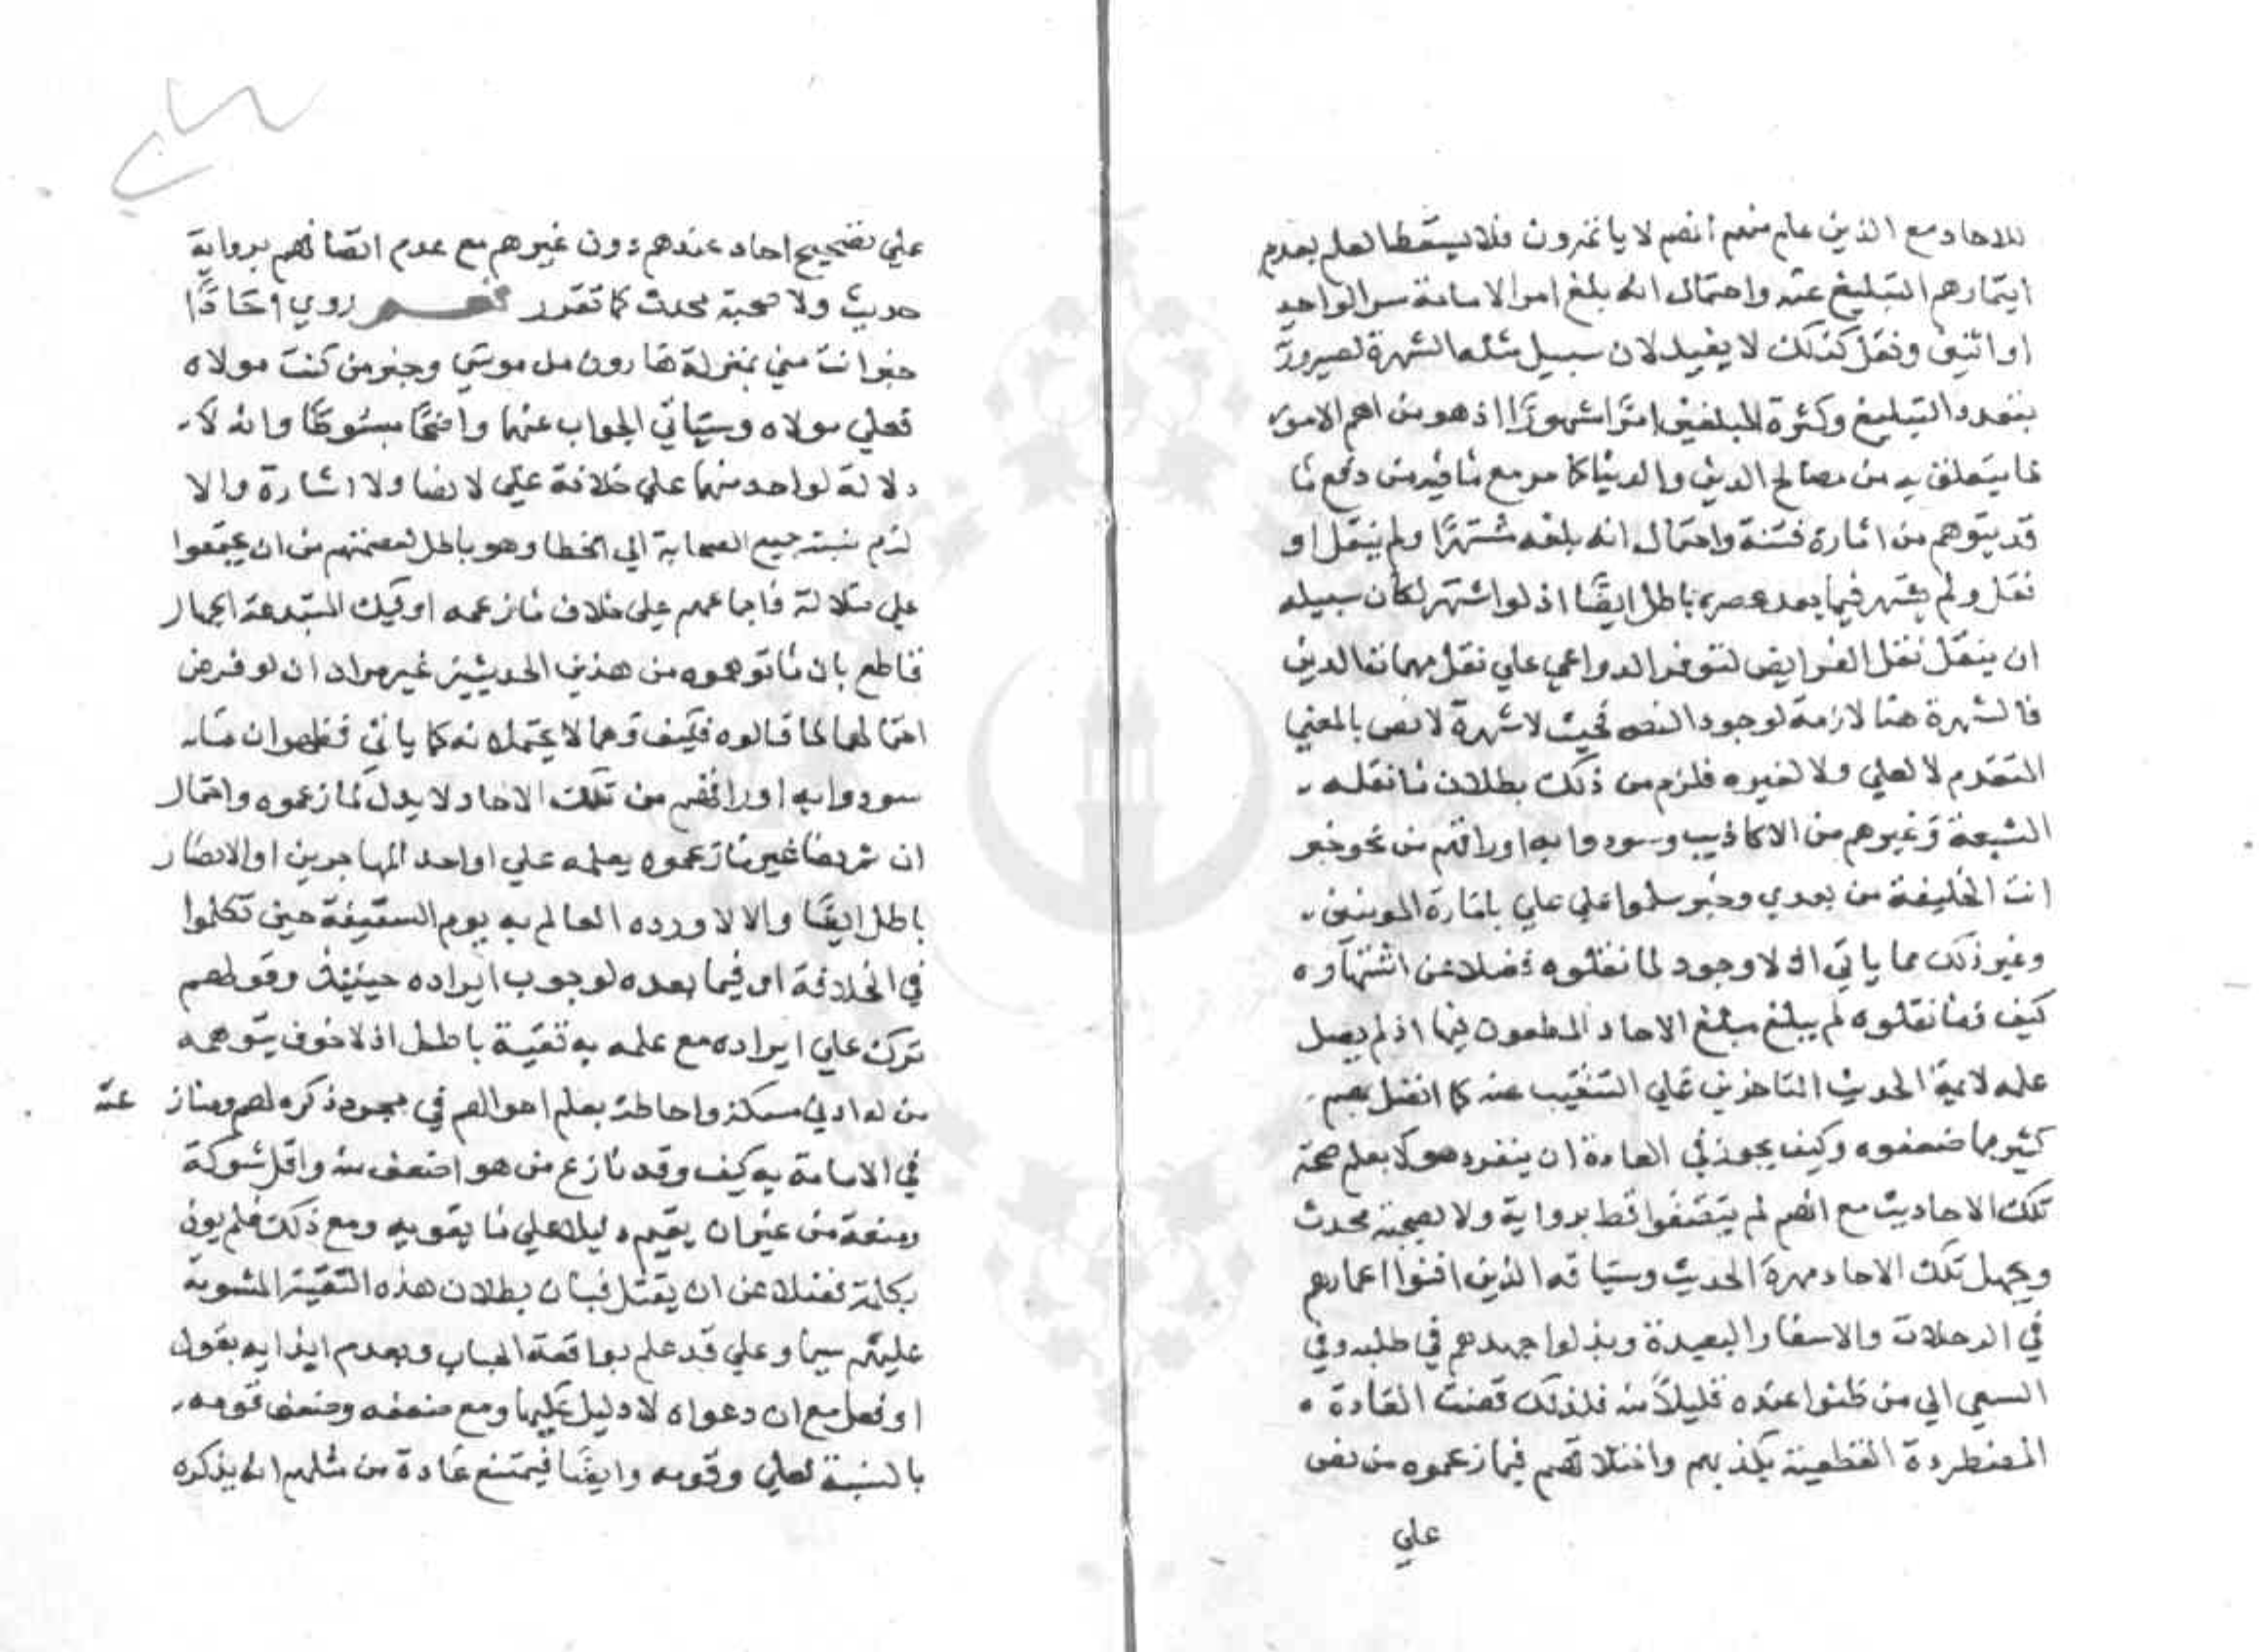 للاحاد مع الذين علم منهم انهم لا ياتمرون فلا يسقط العلم بعدم
ايتمارهم التبليغ عنه واحتمال انه بلغ امر الامامة سرا لواحد
او اثنين ونقل كذلك لا يفيد لان سبيل مثلها الشهرة لصيرورة
بتعدد التبليغ وكثرة المبلغين امرا مشهورا اذ هو من اهم الامور
لما يتعلق به من مصالح الدين والدنيا كما مر مع ما فيه من دفع ما
قد يتوهم من اثارة فتنة واحتمال انه بلغه مشتهرا ولم ينقل او
نقل ولم يشتهر فيما بعد عصره باطل ايضا اذ لو اشتهر لكان سبيله
ان ينقل نقل الفرايض لتوفر الدواعي علي نقل مهمات الدين
فالشهرة هنا لازمة لوجود النص فحيث لا شهرة لا نص بالمعني
المتقدم لا لعلي ولا لغيره فلزم من ذلك بطلان ما نقله
الشيعة وغيرهم من الاكاذيب وسودوا به اوراقهم من نحو خبر
انت الخليفة من بعدي وخبر سلموا علي علي بامارة المومنين
وغير ذلك مما ياتي اذ لا وجود لما نقلوه فضلا عن اشتهاره
كيف وما نقلوه لم يبلغ مبلغ الاحاد المطعون فيها اذ لم يصل
علمه لايمة الحديث المثابرين علي التنقيب عنه كما اتصل بهم
كثير مما ضعفوه وكيف يجوز في العادة ان ينفرد هولا بعلم صحة
تلك الاحاديث مع انهم لم يتصفوا قط برواية ولا بصحبة محدث
ويجهل تلك الاحاد مهرة الحديث وسباقه الذين افنوا اعمارهم
في الرحلات والاسفار البعيدة وبذلوا جهدهم في طلبه وفي
السعي الي من ظنوا عنده قليلا منه فلذلك قضت العادة
المضطردة القطعية بكذبهم واختلاقهم فيما زعموه من نص
علي
علي تصحيح احاد عندهم دون غيرهم مع عدم اتصافهم برواية
حديث ولا صحبة محدث كما تقرر نعم روي احادا
خبر انت مني بمنزلة هارون من موسي وخبر من كنت مولاه
فعلي مولاه وسياتي الجواب عنهما واضحا مبسوطا وانه لا
دلالة لواحد منهما علي خلافة علي لا نصا ولا اشارة والا
لزم نسبة جميع الصحابة الي الخطا وهو باطل لعصمتهم من ان يجتمعوا
علي ضلالة فاجماعهم علي خلاف ما زعمه اوليك المبتدعة الجهال
قاطع بان ما توهموه من هذين الحديثين غير مراد ان لو فرض
احتمالهما لما قالوه فكيف وهما لا يحتملانه كما ياتي فظهر ان ما
سودوا به اوراقهم من تلك الاحاد لا يدل لما زعموه واحتمال
ان ثم نصا غير ما زعموه يعلمه علي او احد المهاجرين او الانصار
باطل ايضا والا لاورده العالم به يوم السقيفة حين تكلموا
في الخلافة او فيما بعده لوجوب ايراده حينيذ وقولهم
ترك علي ايراده مع علمه به تقية باطل اذ لا خوف يتوهمه
من له ادني مسكة واحاطة بعلم احوالهم في مجرد ذكره لهم ومناز عته
في الامامة به كيف وقد نازع من هو اضعف منه واقل شوكة
ومنعة من غير ان يقيم دليلا علي ما يقوله ومع ذلك فلم يوذ
بكلمة فضلا عن ان يقتل فبان بطلان هذه التقية المشومة
عليهم سيما وعلي قد علم بواقعة الحباب وبعدم ايذايه بقول
او فعل مع ان دعواه لا دليل عليها ومع ضعفه وضعف قومه
بالنسبة لعلي وقومه وايضا فيمتنع عادة من مثلهم انه يذكره